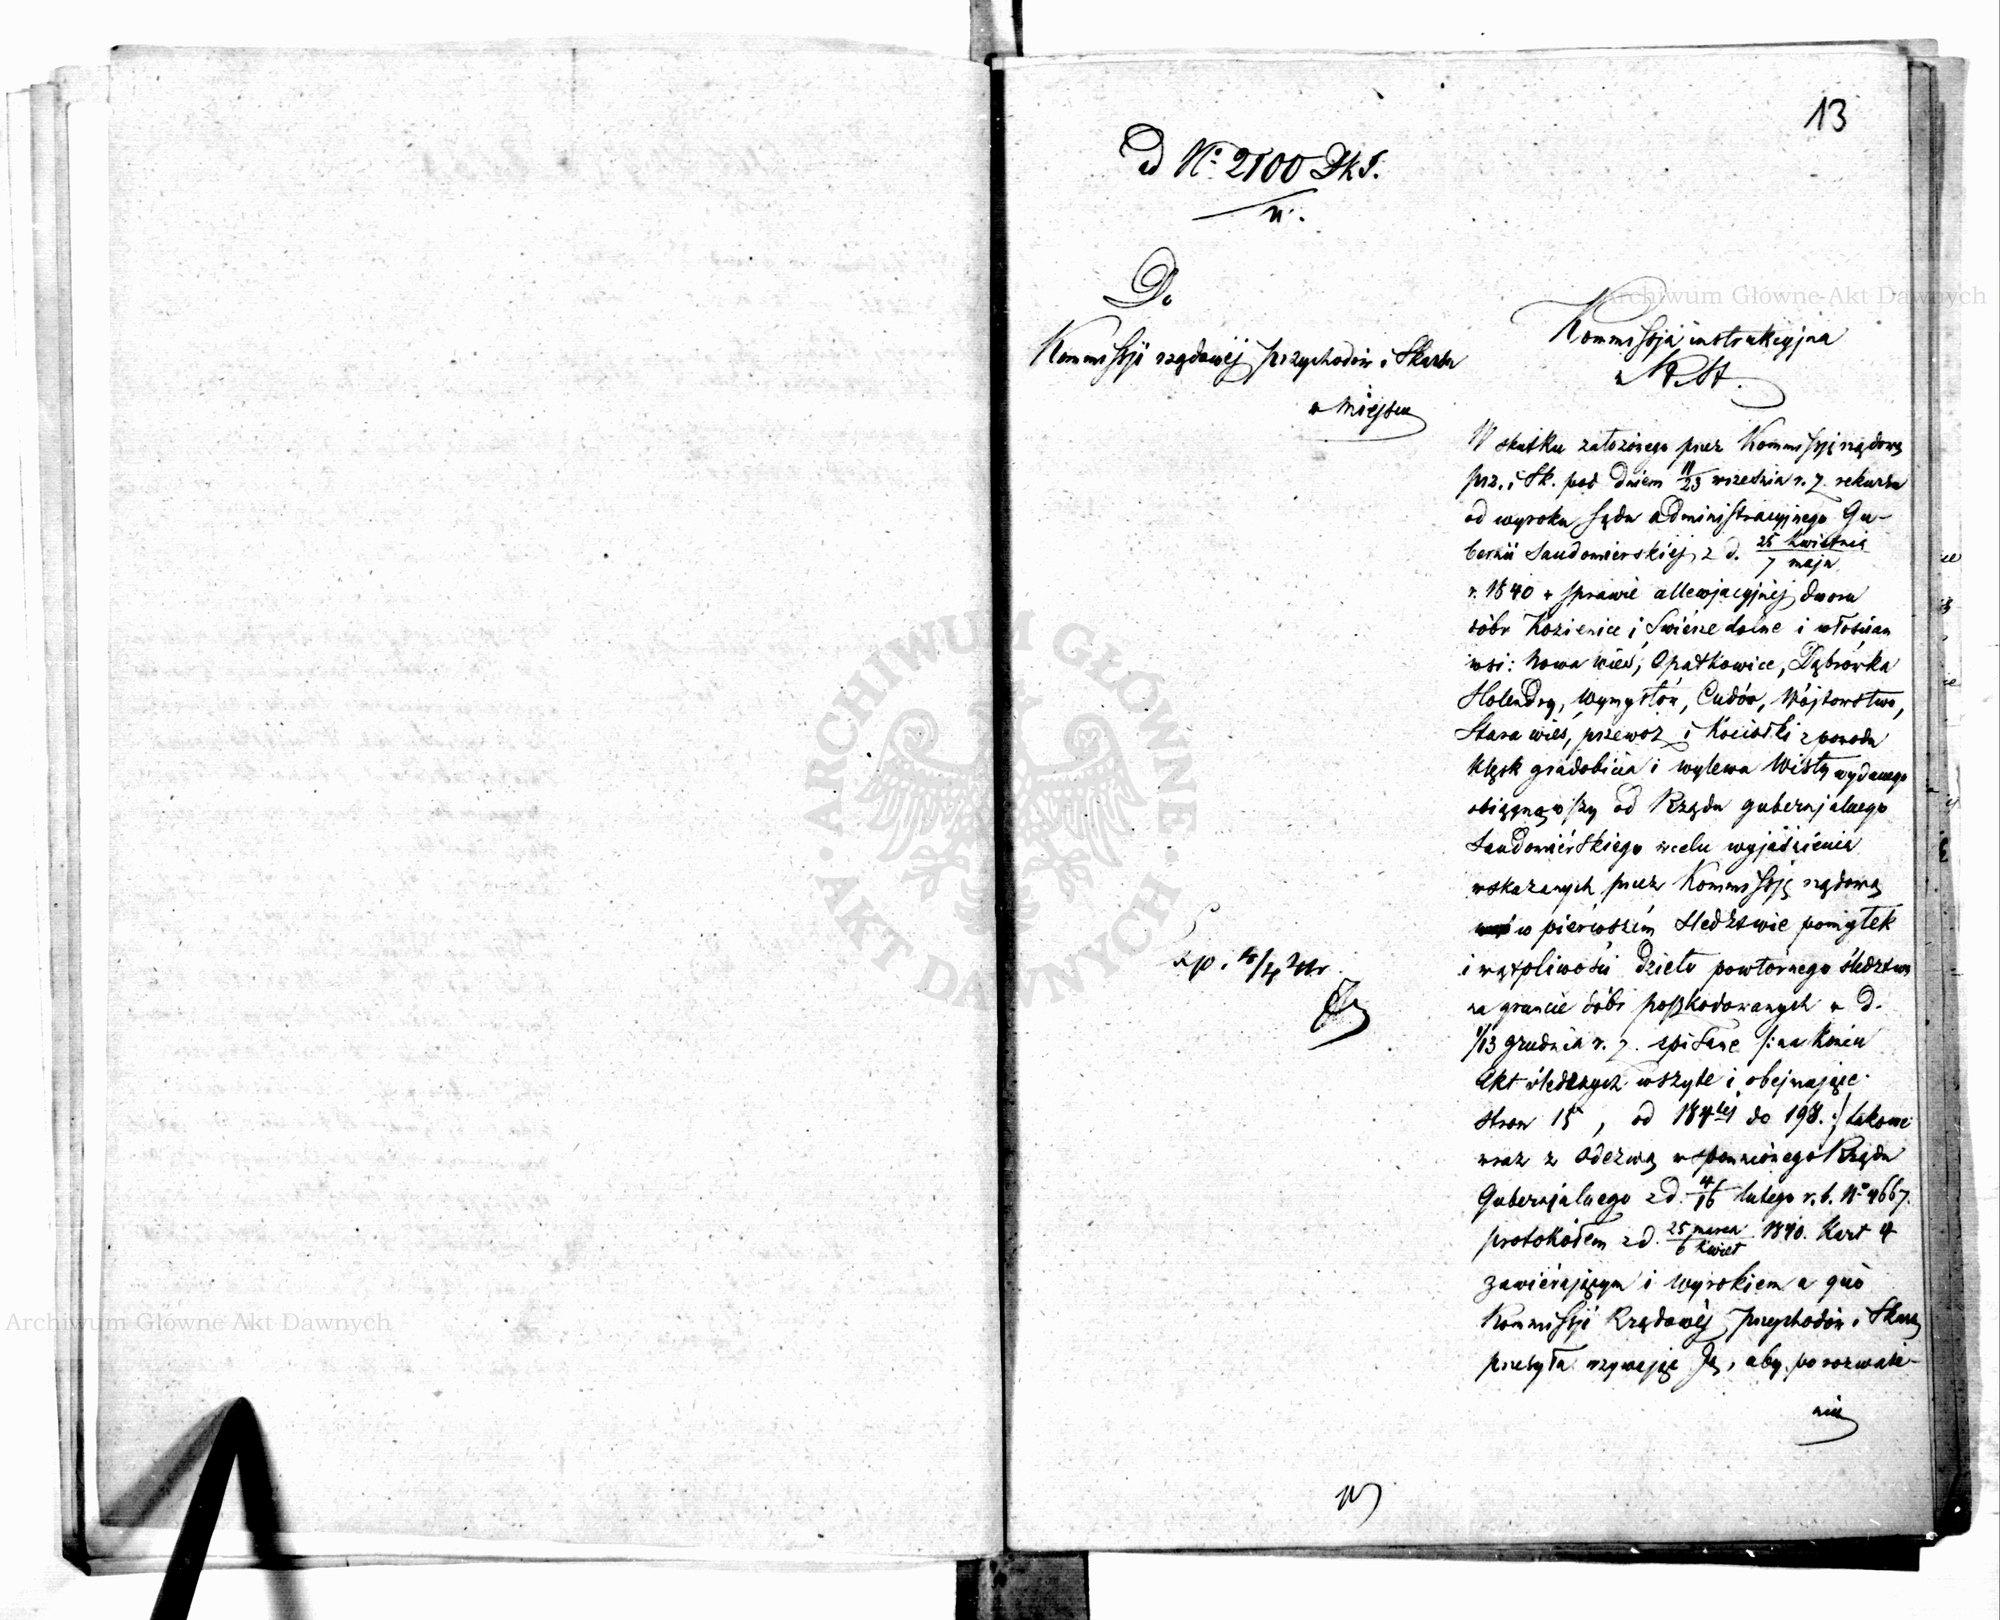 13
ad No 2100 DkS.
Do
Kommissyi rządowéj przychodów i Skarbu
w miejscu
Kommissyja instrukcyjna
R. St.
W skutku założonego przez Kommissyję rządową
prz. i Sk. pod dniem 11/23 września r. z. rekursu
od wyroku sądu administracyjnego Gu-
bernii Sandomierskiéj z d. 25 Kwietnia / 7 maja
r. 1840 w sprawie allewjacyjnéj dworu
dóbr Kozienice i Swierze dolne i włościan
wsi: Nowa wieś, Opatkowice, Dąbrówka
Holendry, Wymysłów, Cudów, Wójtowstwo,
Stara wieś, przewóz i Kociołki z powodu
klęsk gradobicia i wylewu Wisły wydanego
obciągnąwszy od Rządu gubernjalnego
Sandomiérskiego w celu wyjaśnienia
wskazanych przez Kommissyję rządową
w pierwszém śledztwie pomyłek
i wątpliwości dzieło powtórnego śledztwa
na gruncie dóbr poszkodowanych w d.
1/13 grudnia r. z. spisane /: na końcu
Akt śledczych wszyte i obejmujące
stron 15, od 184tej do 198. :/ takowe
wraz z odezwą wspomnionego Rządu
Gubernjalnego z d. 4/16 lutego r. b. No 4667.
protokółem z d. 25 marca / 6 Kwiet 1840. Kart 4
zawiérającym i wyrokiem a quo
Kommissyi Rządowéj Przychodów i Skarbu
przesyła wzywając Ją, aby po rozważe-
niu
Archiwum Główne Akt Dawnych
Archiwum Główne Akt Dawnych
ARCHIWUM GŁÓWNE · AKT DAWNYCH ·